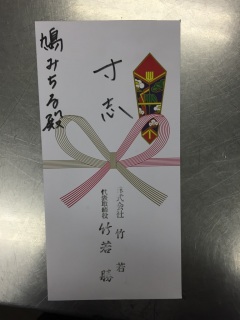 鳩みちる殿
寸志
株式会社 竹若
代表取締役 竹若